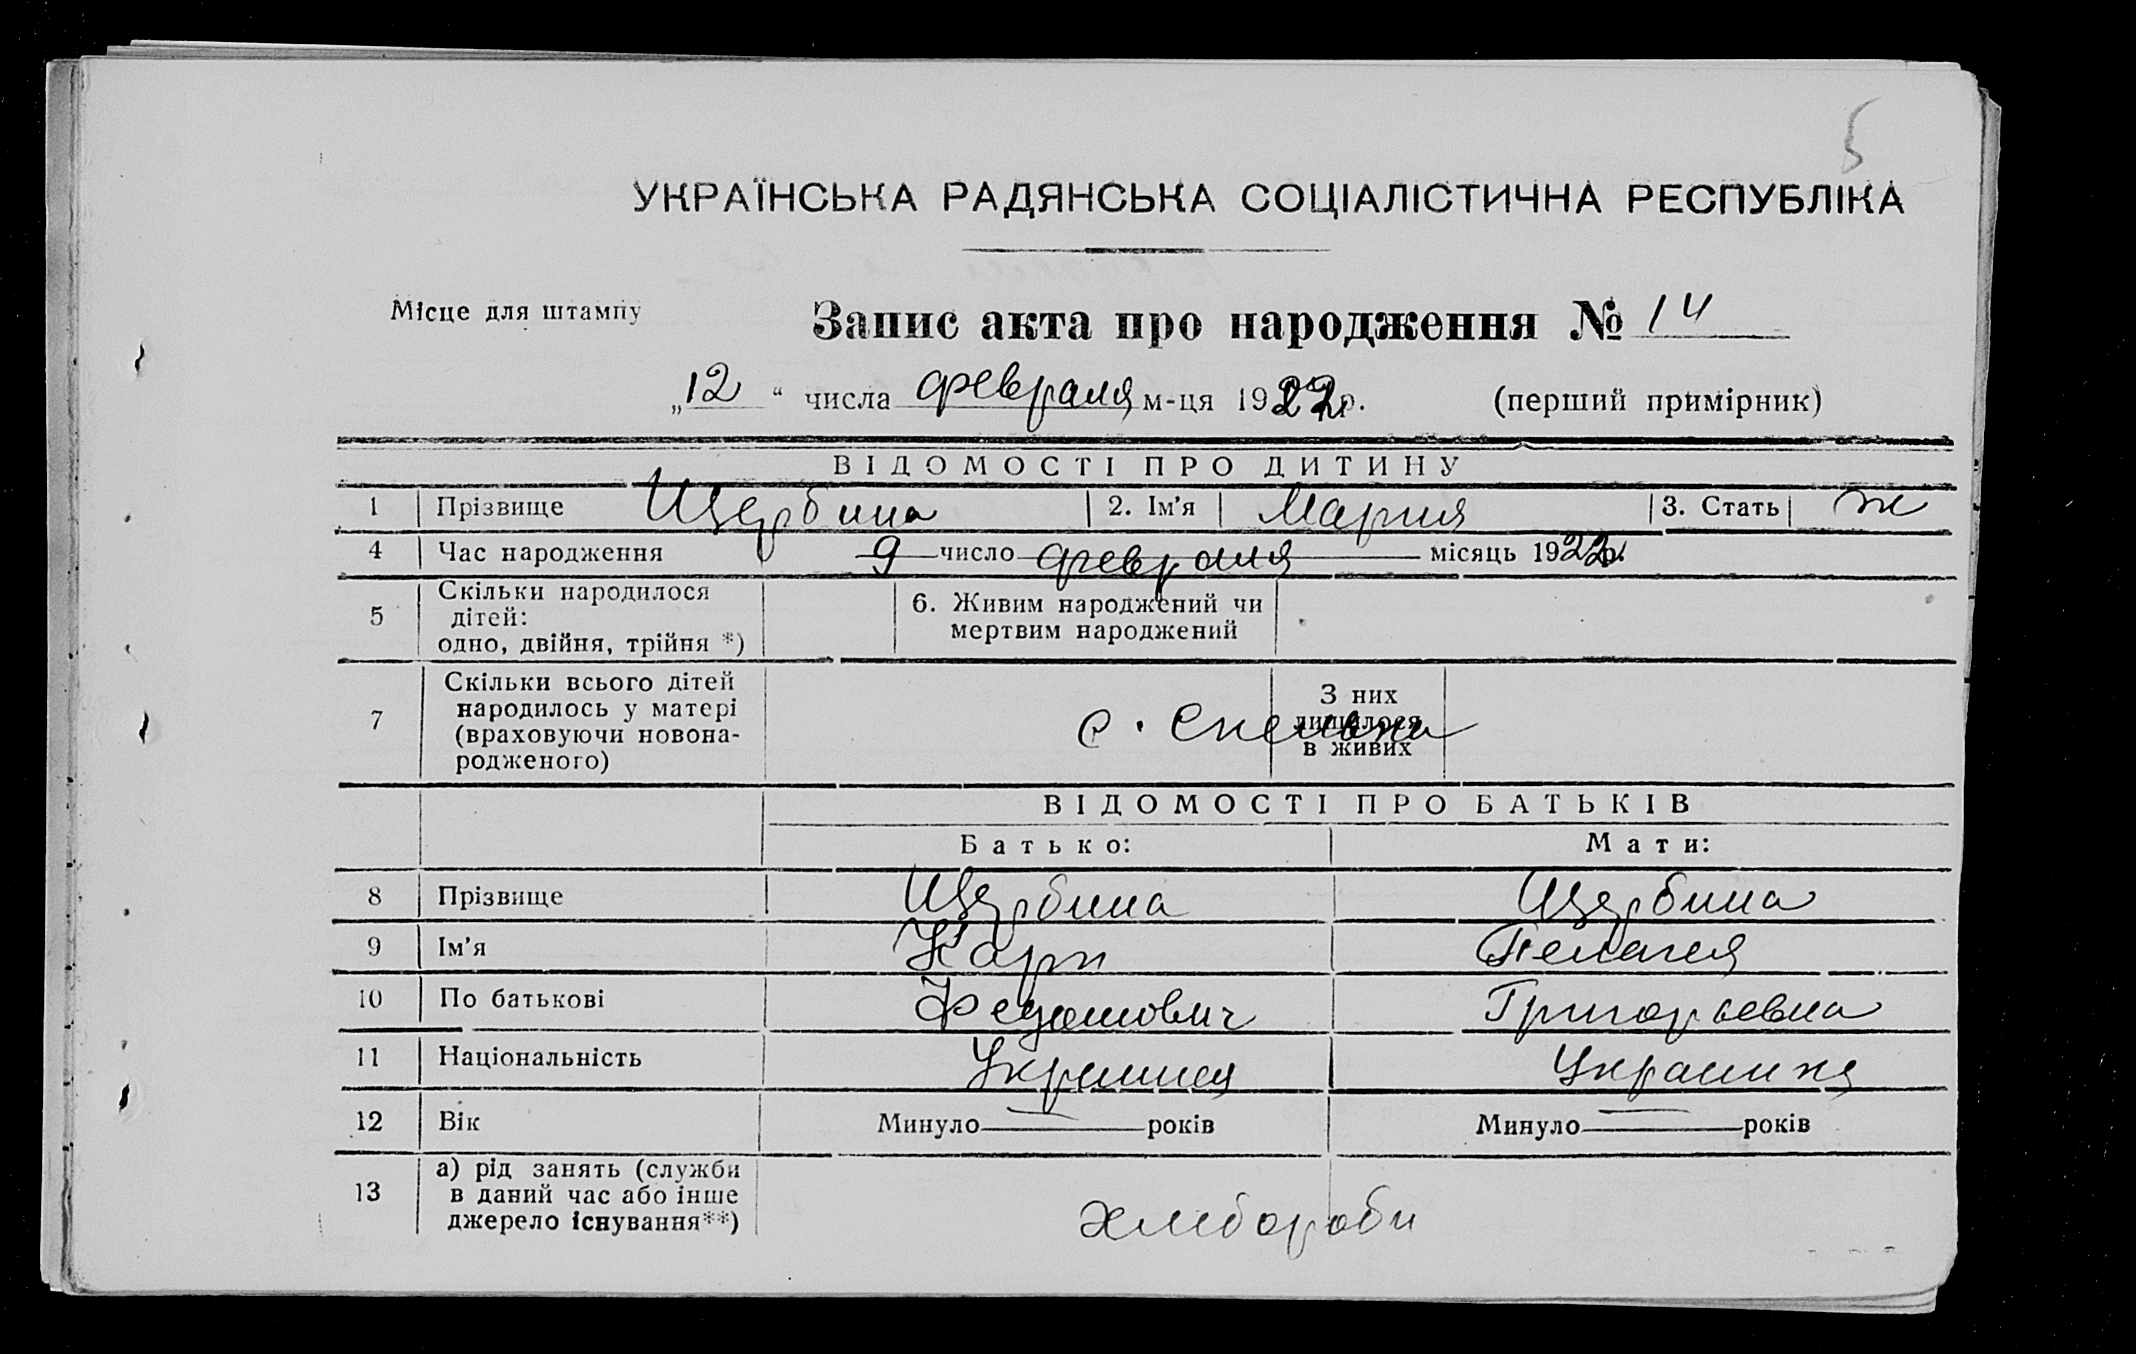 5
УКРАЇНСЬКА РАДЯНСЬКА СОЦІАЛІСТИЧНА РЕСПУБЛІКА
Місце для штампу
Запис акта про народження № 14
„12“ числа февраля м-ця 1922 р. (перший примірник)
ВІДОМОСТІ ПРО ДИТИНУ
1 Прізвище Щербина 2. Ім'я Мария 3. Стать ж
4 Час народження 9 число февраля місяць 1922 р.
5 Скільки народилося дітей: одно, двійня, трійня *) 6. Живим народжений чи мертвим народжений
7 Скільки всього дітей народилось у матері (враховуючи новонародженого) с. З них лишилося в живих
ВІДОМОСТІ ПРО БАТЬКІВ
Батько: Мати:
8 Прізвище Щербина Щербина
9 Ім'я Карп Пелагея
10 По батькові Григорьевна
11 Національність Украинец Украинка
12 Вік Минуло — років Минуло — років
13 а) рід занять (служби в даний час або інше джерело існування**) хлібороби